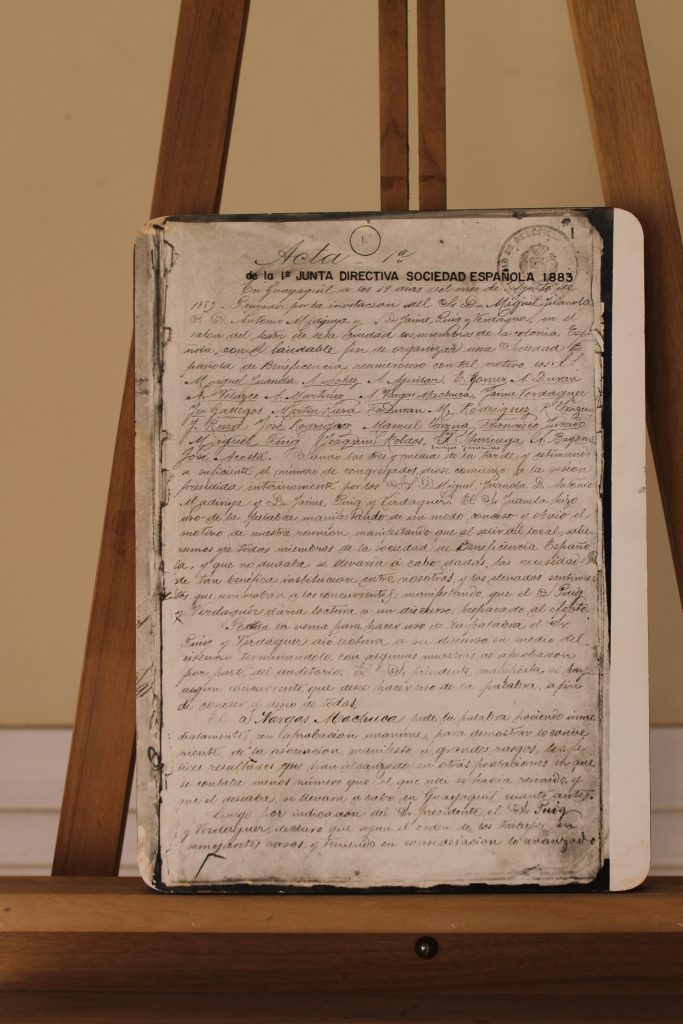 1
1
Acta 1ª
de la 1ª JUNTA DIRECTIVA SOCIEDAD ESPAÑOLA 1.883
En Guayaquil a los 19 dias del mes de Agosto de
1883. Reunidos por la invitacion del Sr. Dn. Miguel Juanola
D. Antonio Madinya y D Jaime Puig y Verdaguer, en el
salon del de esta ciudad los miembros de la colonia Es-
pañola, con el laudable fin de organizar una Sociedad Es-
pañola de Beneficencia, reunieronse con tal motivo los S.S.
Miguel Juanola, A. A. Aguilar, E. Gomez A. Duran
A. Velazco A. Martinez, A. Vargas Machuca, Jaime Verdaguer
José Gallegos Martin Riera Fo Duran M. Rodriguez R.
J. Riera José Rodriguez, Manuel Francisco Jurado
Miguel Puig Joaquin Robles, A. Gayona
José Acosta. Siendo las tres y media de la tarde y estimando
se suficiente el numero de congregados, diose comienzo a la sesion
presidida interinamente por los S.S. D Miguel Juanola D. Antonio
Madinya y Dn Jaime Puig y Verdaguer. El Sr Juanola hizo
uso de la palabra manifestando de un modo conciso y obvio el
motivo de nuestra reunion, manifestando que al salir del local, salie-
ramos ya todos miembros de la sociedad de Beneficencia Españo-
la, y que no dudaba se llevaria á cabo dadas, las necesidades
de tan benéfica institucion entre nosotros, y los elevados sentimien-
tos que animaban a los concurrentes; manifestando, que el S Puig
y Verdaguer daria lectura a un discurso, preparado al efecto.
la venia para hacer uso de la palabra el Sr
Puig y Verdaguer dió lectura a su discurso en medio del
silencio terminandolo, con algunas muestras de aprobacion
por parte del auditorio. El Sr presidente, manifiesta si hay
algun concurrente que desee hacer uso de la palabra, a fin
de conocer el deseo de todos.
El S Vargas Machuca pide la palabra haciendo inme-
diatamente, con aprobacion unanime, para demostrar lo conve-
niente, de la asociacion manifesto á grandes rasgos, los fe-
lices resultados que han alcanzado en otras poblaciones en que
se contaba menos número que el que alli se habia reunido, y
que el deseaba se llevara a cabo en Guayaquil cuanto antes.
Luego por indicacion del Sr. presidente, el Sr Puig
y Verdaguer, declaró que segun el orden de los trabajos en
semejantes casos, y teniendo en consideracion lo avanzado